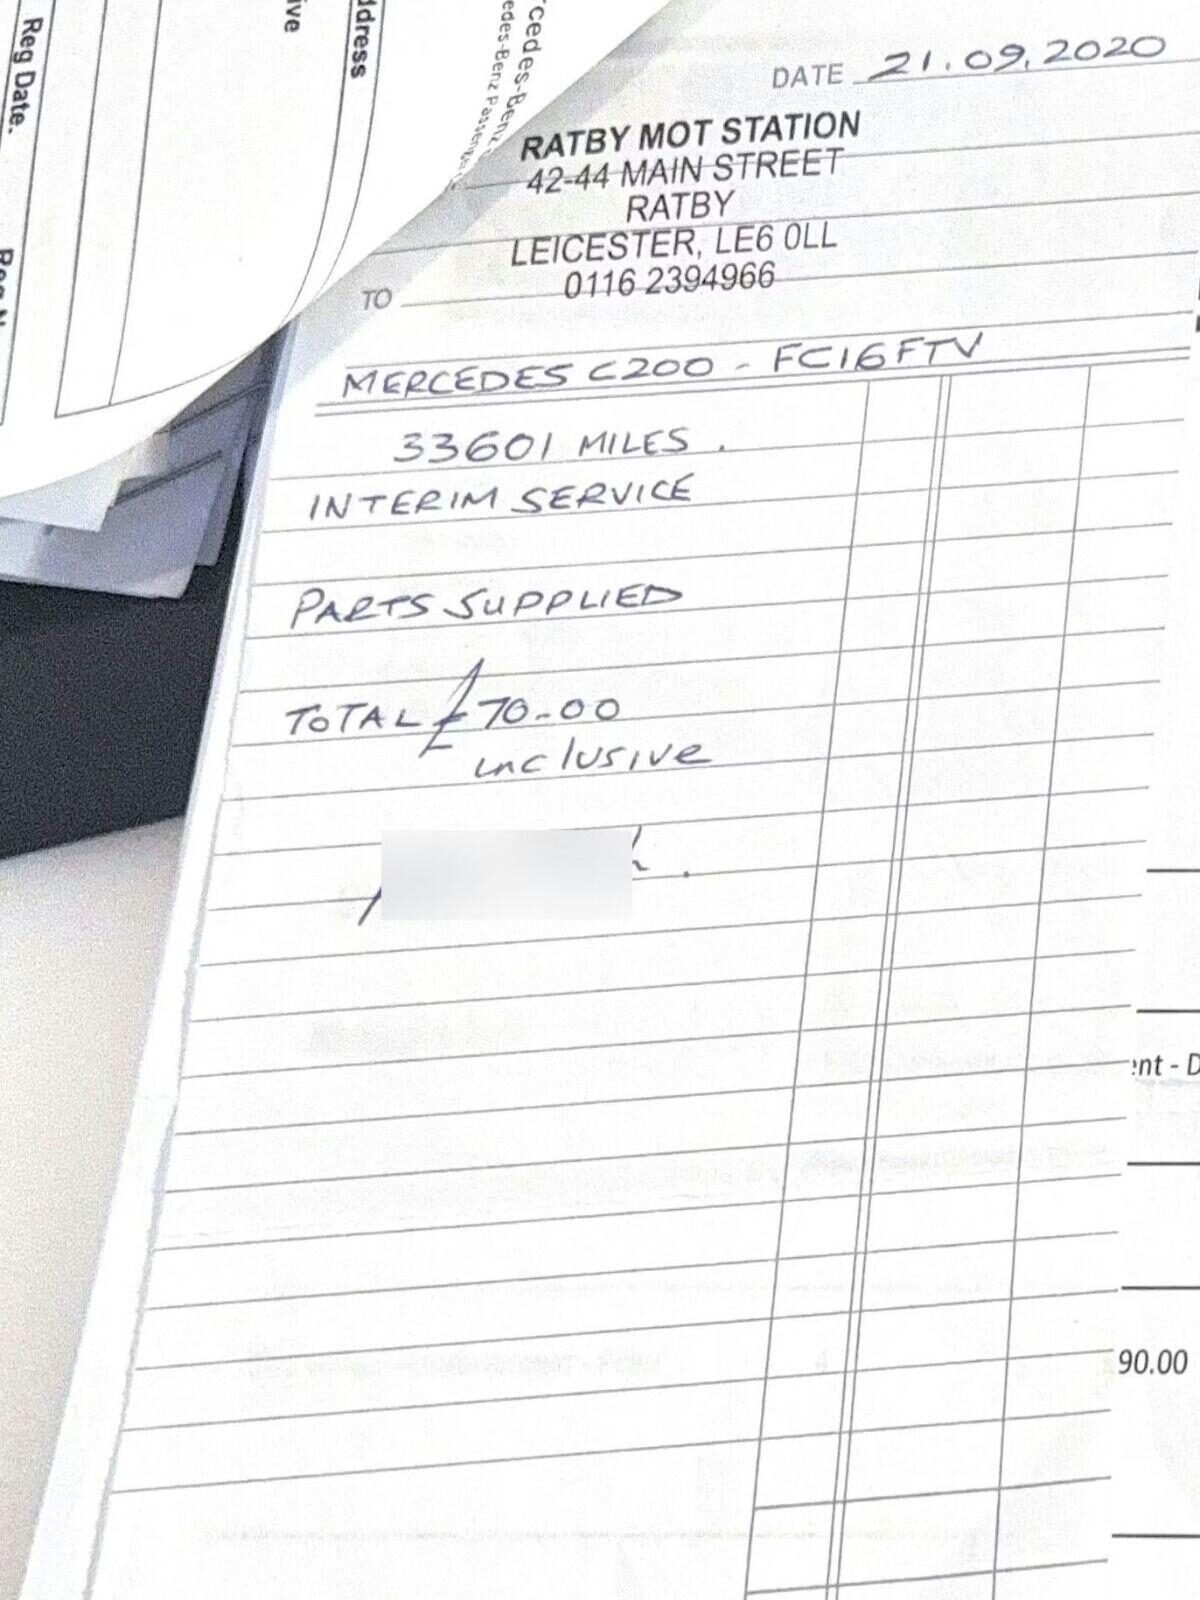 Reg Date.
ive
ddress
rcedes-Benz
edes-Benz Passenge
DATE 21.09.2020
RATBY MOT STATION
42-44 MAIN STREET
RATBY
LEICESTER, LE6 0LL
0116 2394966
TO
MERCEDES C200 - FC16FTV
33601 MILES.
INTERIM SERVICE
PARTS SUPPLIED
TOTAL £70-00
inclusive
ent - D
90.00